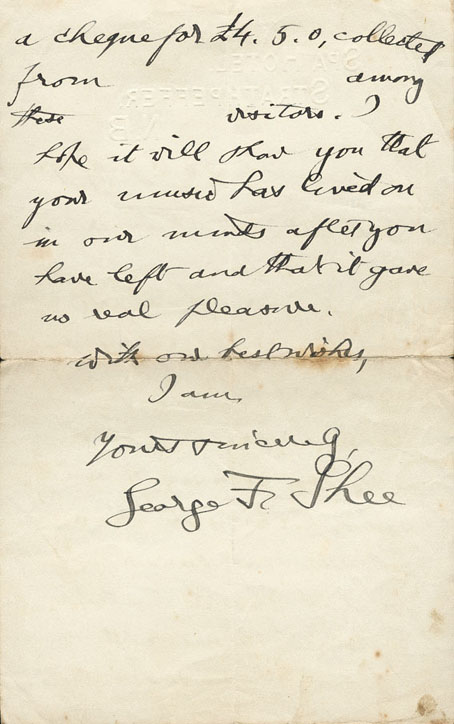 a cheque for £4. 5. 0, collected
from among
these visitors. I
hope it will show you that
your music has lived on
in our minds after you
have left and that it gave
us real pleasure.
With our best wishes,
I am,
Yours sincerely,
George F. Shee
SPA HOTEL
STRATHPEFFER
N.B.